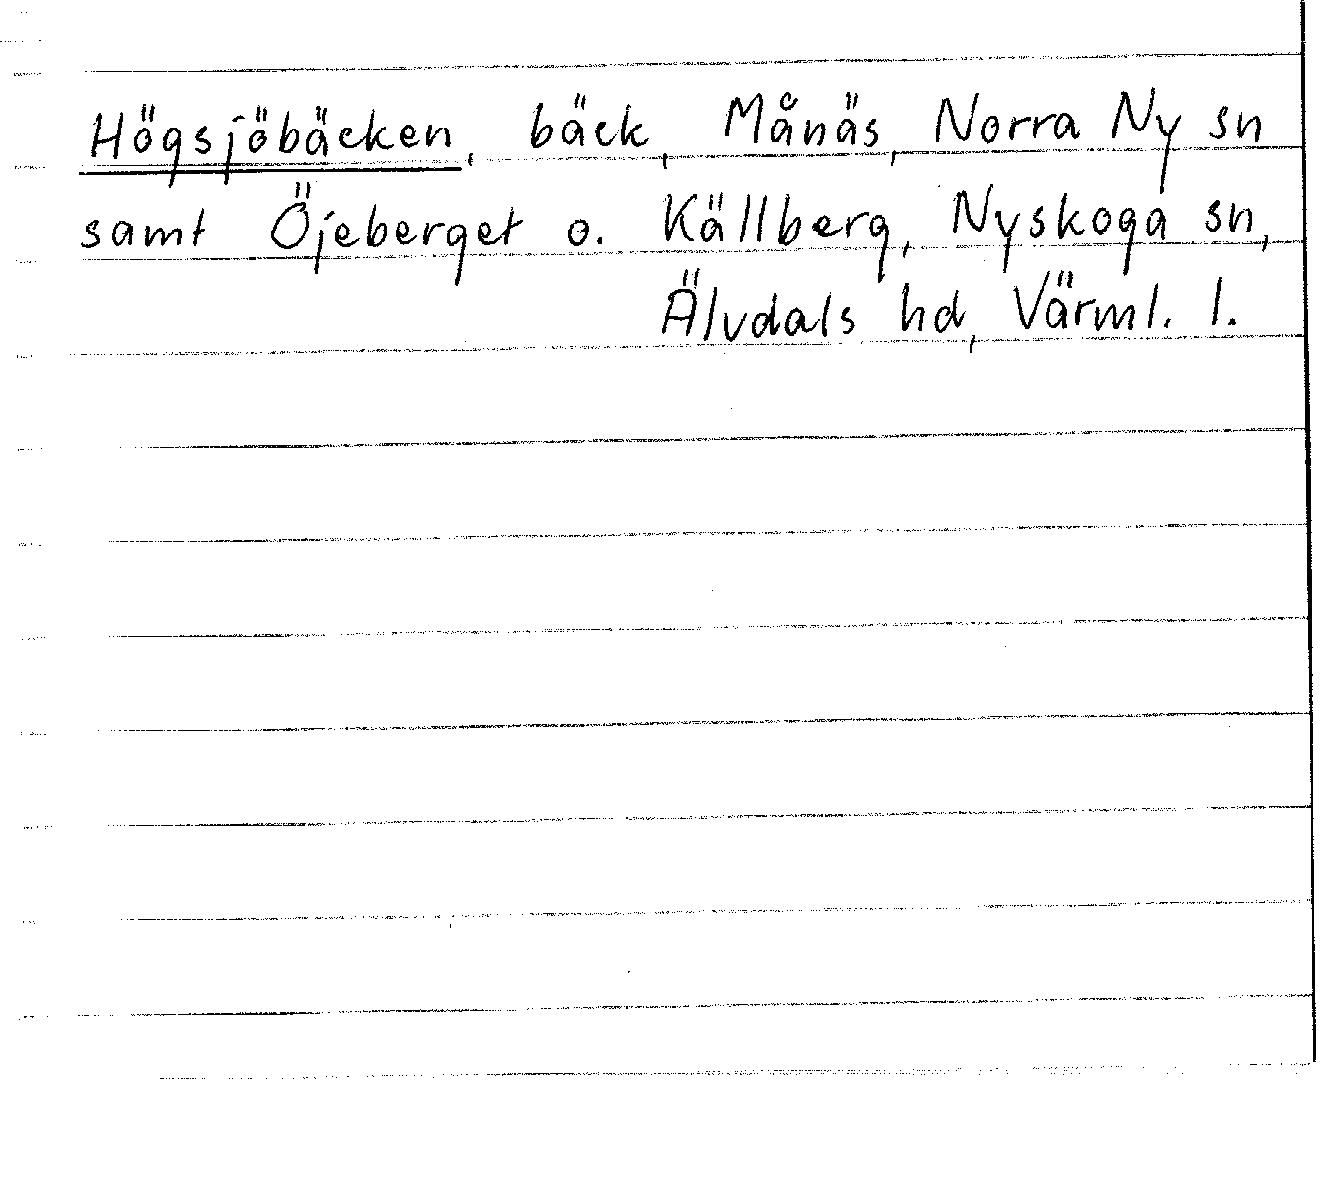 Högsjöbäcken, bäck, Månäs, Norra Ny sn
samt Öjeberget o. Källberg, Nyskoga sn,
Älvdals hd, Värml. l.